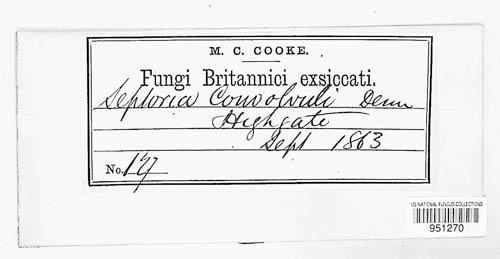 M. C. COOKE.
Fungi Britannici exsiccati.
Septoria Convolvuli Desm
Highgate
Sept 1863
No. 127
US NATIONAL FUNGUS COLLECTIONS
951270